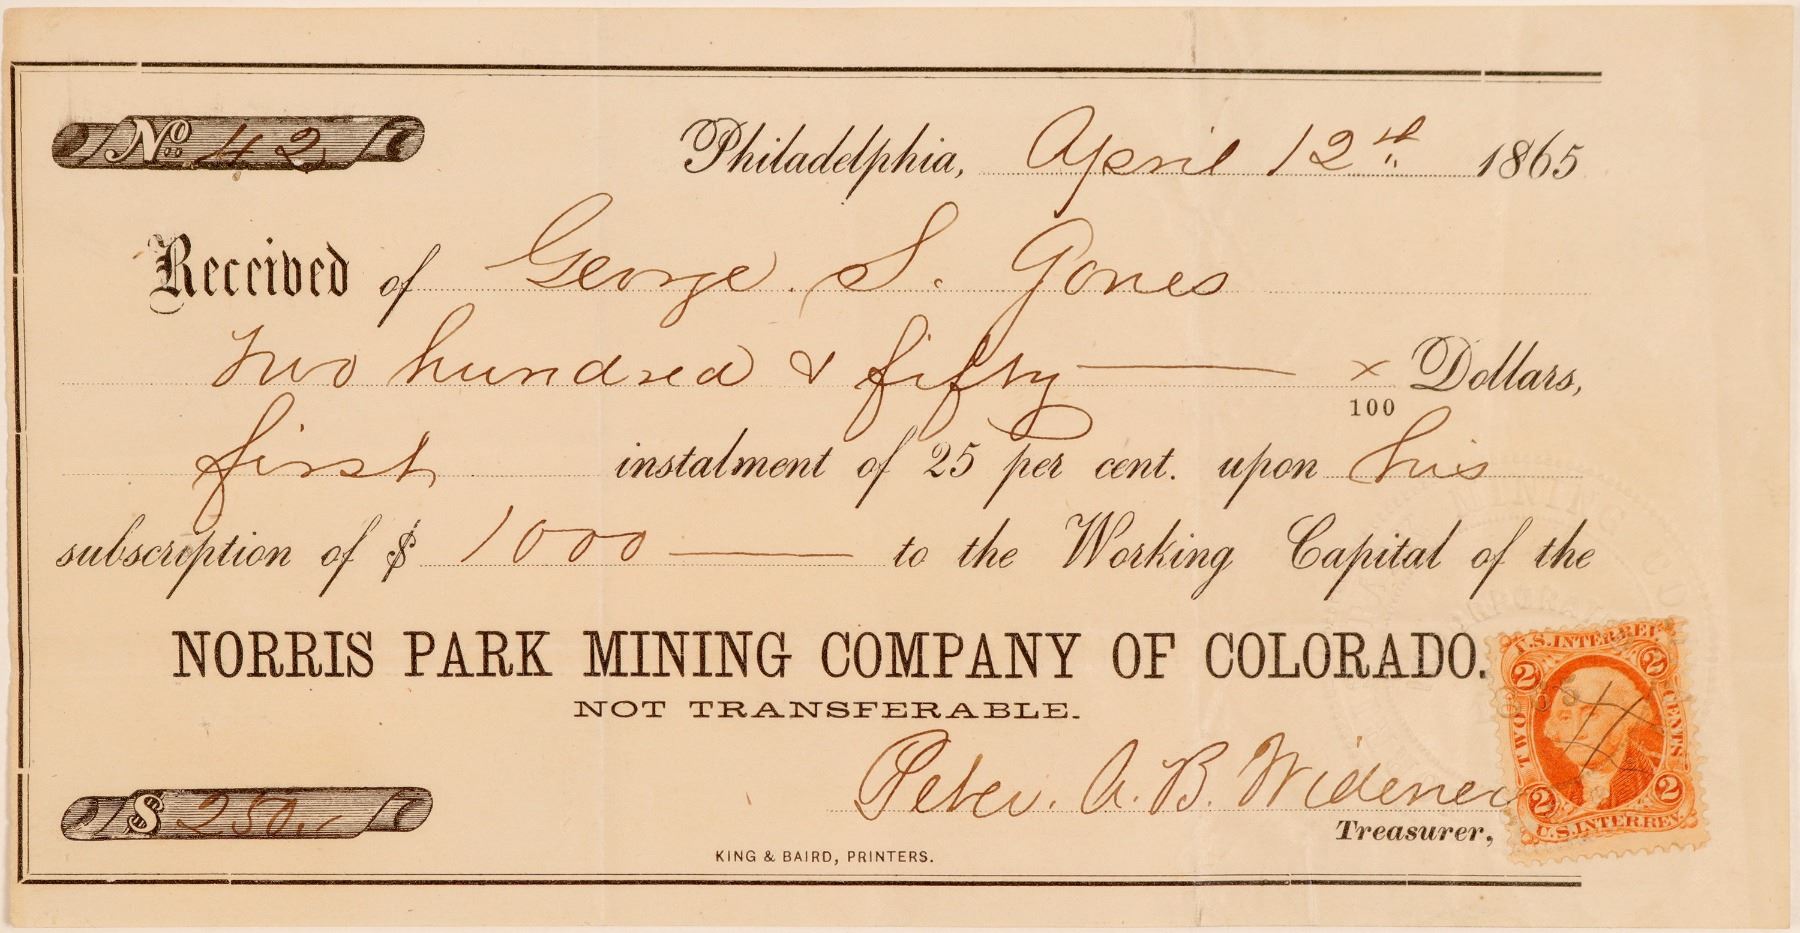 No. 42
Philadelphia, April 12th 1865
Received of George S. Jones
Two hundred & fifty — x/100 Dollars,
first instalment of 25 per cent. upon his
subscription of $ 1000 — to the Working Capital of the
NORRIS PARK MINING COMPANY OF COLORADO.
NOT TRANSFERABLE.
Peter. A. B. Widener
Treasurer,
$ 250.-
KING & BAIRD, PRINTERS.
U.S. INTER. REV.
2 2
TWO CENTS
2 2
U.S. INTER. REV.
MINING CO